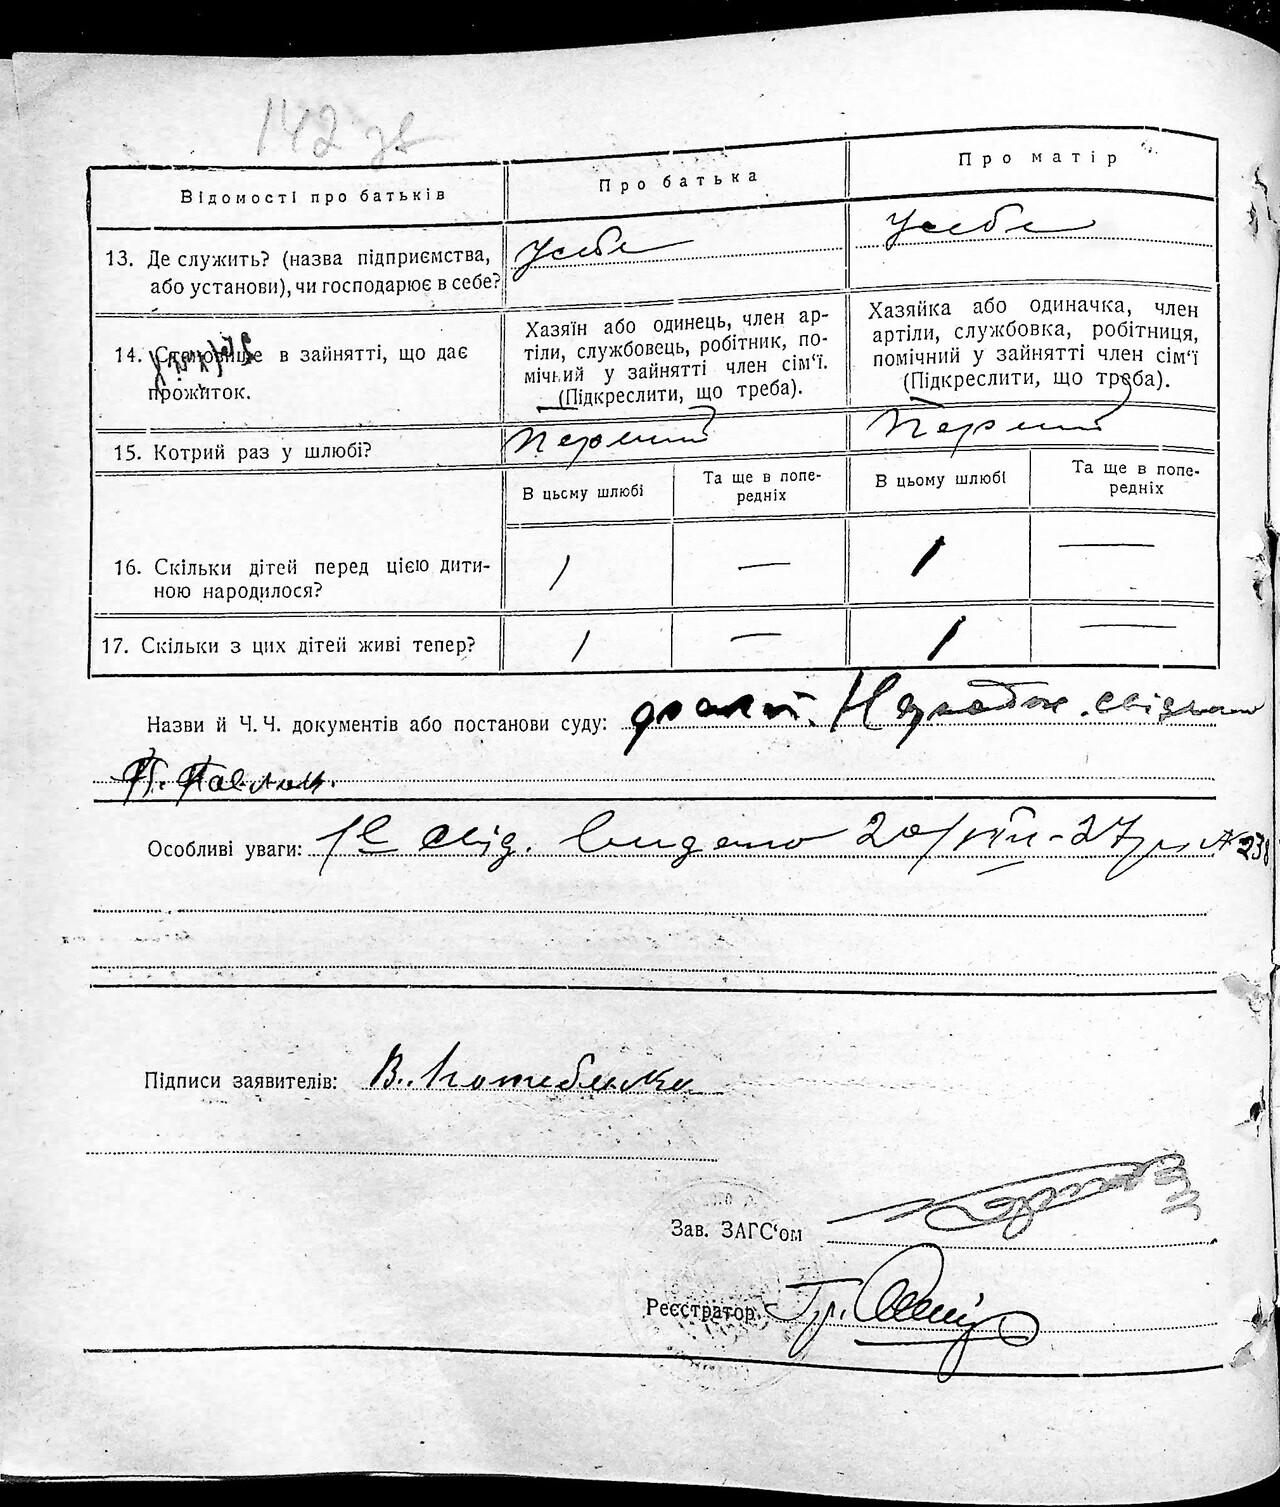 142 зв
Відомості про батьків
Про батька
Про матір
13. Де служить? (назва підприємства,
або установи), чи господарює в себе?
У себе
У себе
14. Становище в зайнятті, що дає
прожиток.
Хазяїн або одинець, член ар-
тілі, службовець, робітник, по-
мічний у зайнятті член сім'ї.
(Підкреслити, що треба).
Хазяйка або одиначка, член
артілі, службовка, робітниця,
помічний у зайнятті член сім'ї
(Підкреслити, що треба).
15. Котрий раз у шлюбі?
Перший
Перший
В цьому шлюбі
Та ще в попе-
редніх
В цьому шлюбі
Та ще в попе-
редніх
16. Скільки дітей перед цією дити-
ною народилося?
1 — 1 —
17. Скільки з цих дітей живі тепер?
1 — 1 —
Назви й Ч. Ч. документів або постанови суду:
Особливі уваги: 1е свід. видано 20/VIII-27р. № 238
Підписи заявителів: В.
Зав. ЗАГС'ом
Реєстратор